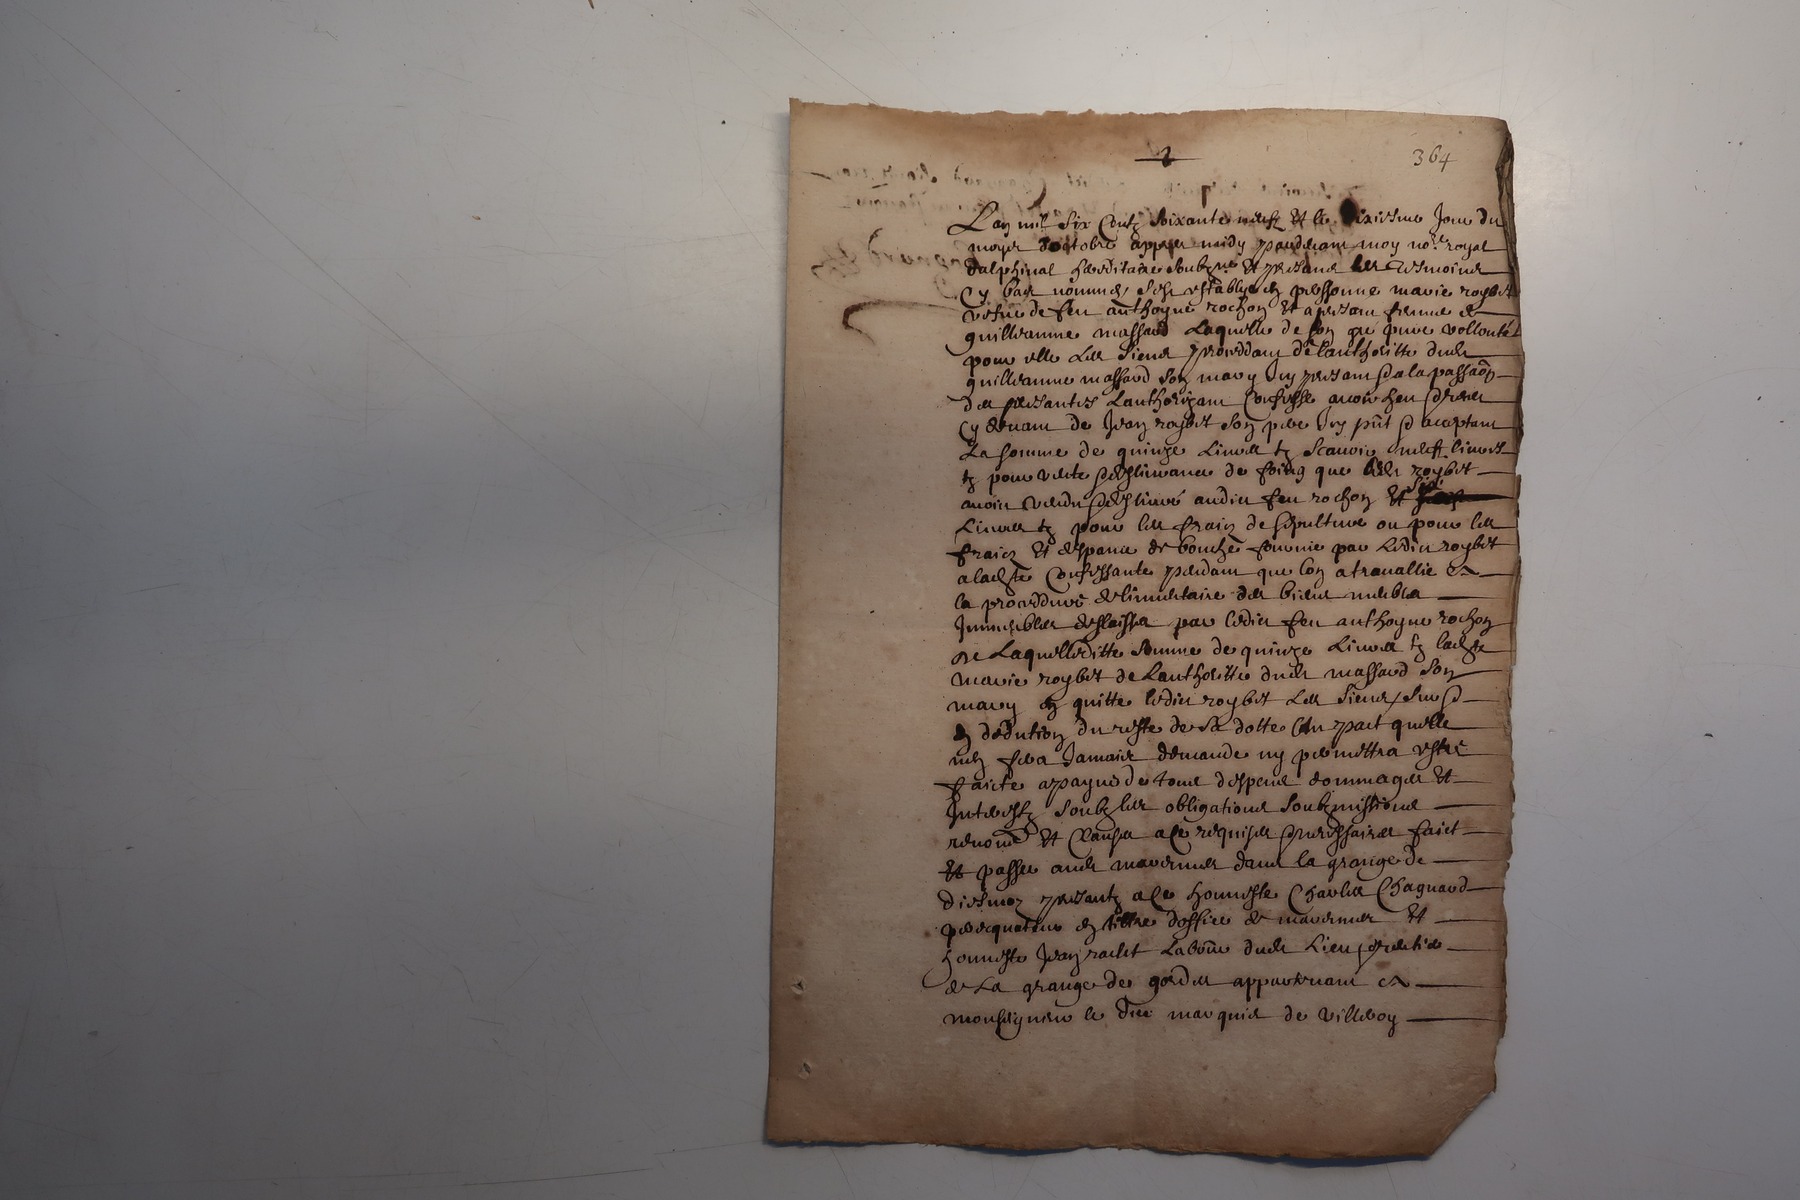 364
L'an mil six centz soixante neufz et le sixiesme jour du
moyes d'octobre appres midy pardevant moy no.re royal
dalphinal hereditaire soubz.ne et presans les tesmoins
cy bas nommes s'est establye en personne marie roybet
vefve de feu anthoyne rochon et a presant femme de
guilleaume massard laquelle de son gre pure vollonté
pour elle les siens proceddant de l'anthoritte dudt
guilleaume massard son mary icy presant et a la passaon
des presantes l'anthorizant confesse avoir heu et receu
cy devant de jean roybet son pere icy pnt et acceptant
la somme de quinze livres tz scavoir neuff livres
tz pour vente et deslivrance de foing que ledt roybet
avoir vendu et deslivré audict feu rochon et six
livres tz pour les fraiz de sepulture ou pour les
fraiz et despance de bouche fournie par ledict roybet
a ladte confessante pendant que l'on a travallie a
la proceddure de l'inventaire des biens meubles
immeubles deslaisses par ledict feu anthoyne rochon
de laquelleditte somme de quinze livres tz ladte
marie roybet de l'anthoritte dudt massard son
mary en quitte ledict roybet les siens
en dedution du reste de sa dotte avec pact quelle
n'en fera jamais demande ny permettra estre
faicte a payne de tous despens dommages et
interestz soubz les obligations soubzmissions
renon.on et clauses a ce requises et necessaires faict
et passe audt mavernes dans la grange de
diesmoz presantz a ce honneste Charles Chagnard
perequateur en tiltre d'office de mavernes et
honneste jean rachet labour dudt lieu
de la grange de gordes appartenant a
monseigneur le duc marquis de villeroy